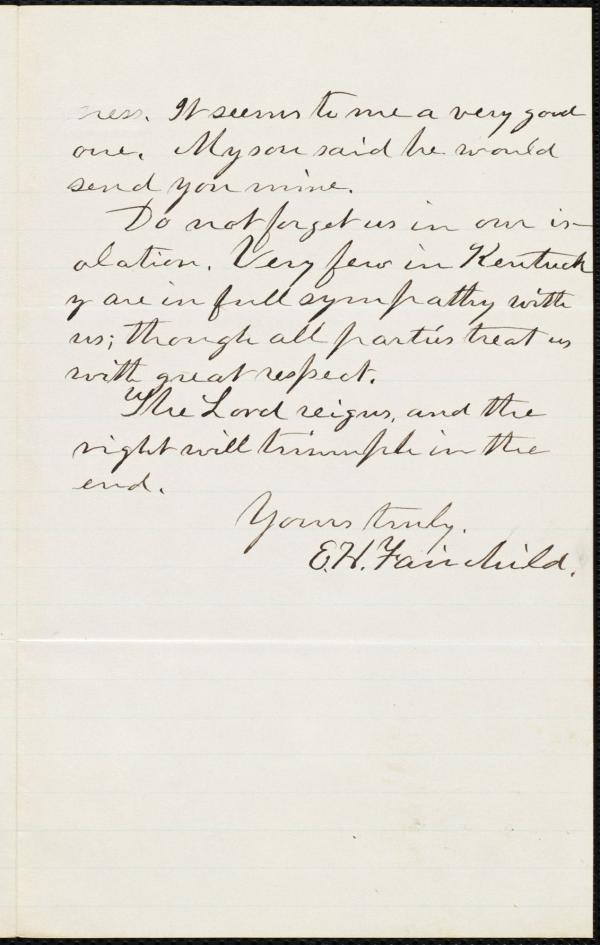 ness. It seems to me a very good
one. My son said he would
send you mine.
Do not forget us in our is-
olation. Very few in Kentuck
y are in full sympathy with
us; though all parties treat us
with great respect.
The Lord reigns, and the
right will triumph in the
end.
Yours truly.
E. H. Fairchild.